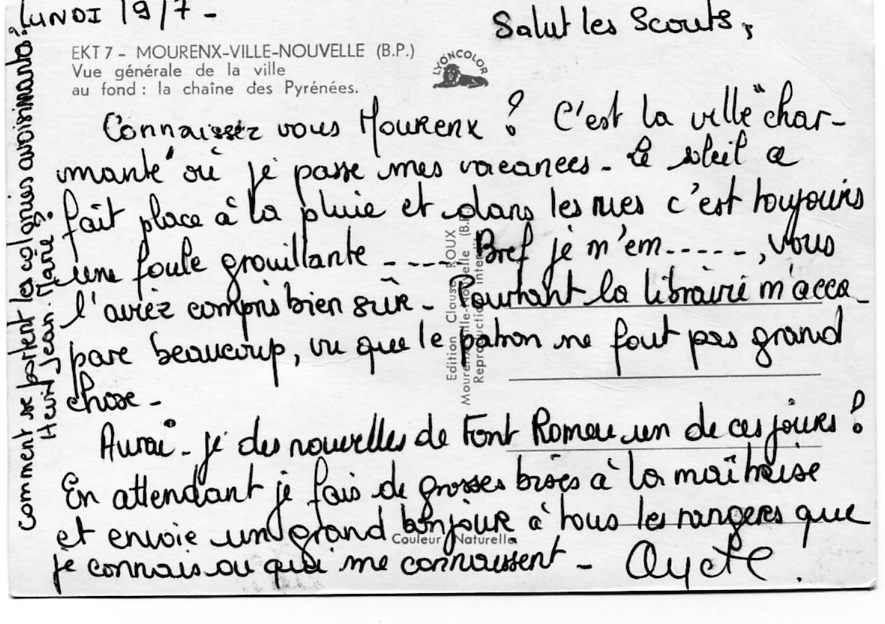 LUNDI 19/7 -
Salut les Scouts,
EKT 7 - MOURENX-VILLE-NOUVELLE (B.P.)
Vue générale de la ville
au fond : la chaîne des Pyrénées.
LYONCOLOR
Connaissez vous Mourenx ? C'est la ville "char-
mante" où je passe mes vacances - Le soleil a
fait place à la pluie et dans les rues c'est toujours
une foule grouillante ----- Bref je m'em-----, vous
l'aviez compris bien sûr - Pourtant la librairie m'acca-
pare beaucoup, vu que le patron ne fout pas grand
chose -
Aurai-je des nouvelles de Font Romeu un de ces jours ?
En attendant je fais de grosses bises à la maîtrise
et envoie un grand bonjour à tous les rangers que
je connais ou qui me connaissent -
Comment se portent les colonies avoisinantes ?
Hein Jean-Marie ?
Edition Claude ROUX
Mourenx-Ville-Nouvelle (B.P.)
Reproduction Inter
Couleur Naturelle